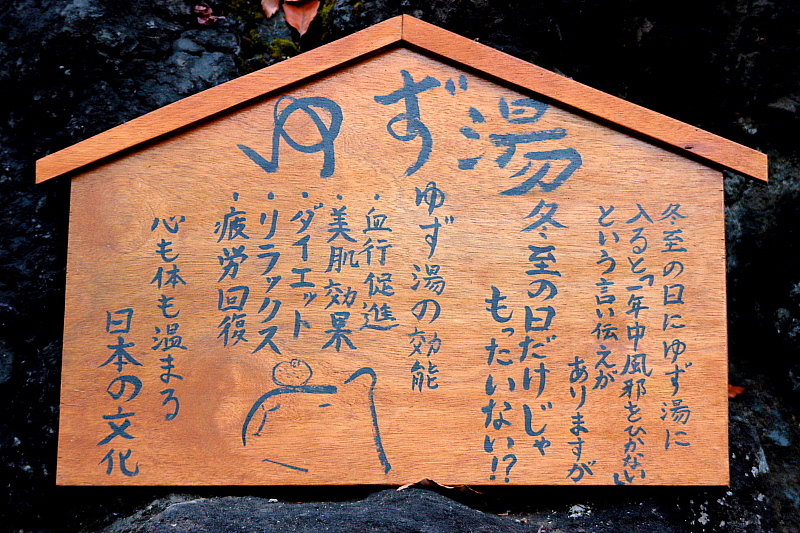 ゆず湯
冬至の日にゆず湯に
入ると「一年中風邪をひかない」
という言い伝えが
ありますが
冬至の日だけじゃ
もったいない!?
ゆず湯の効能
・血行促進
・美肌効果
・ダイエット
・リラックス
・疲労回復
心も体も温まる
日本の文化